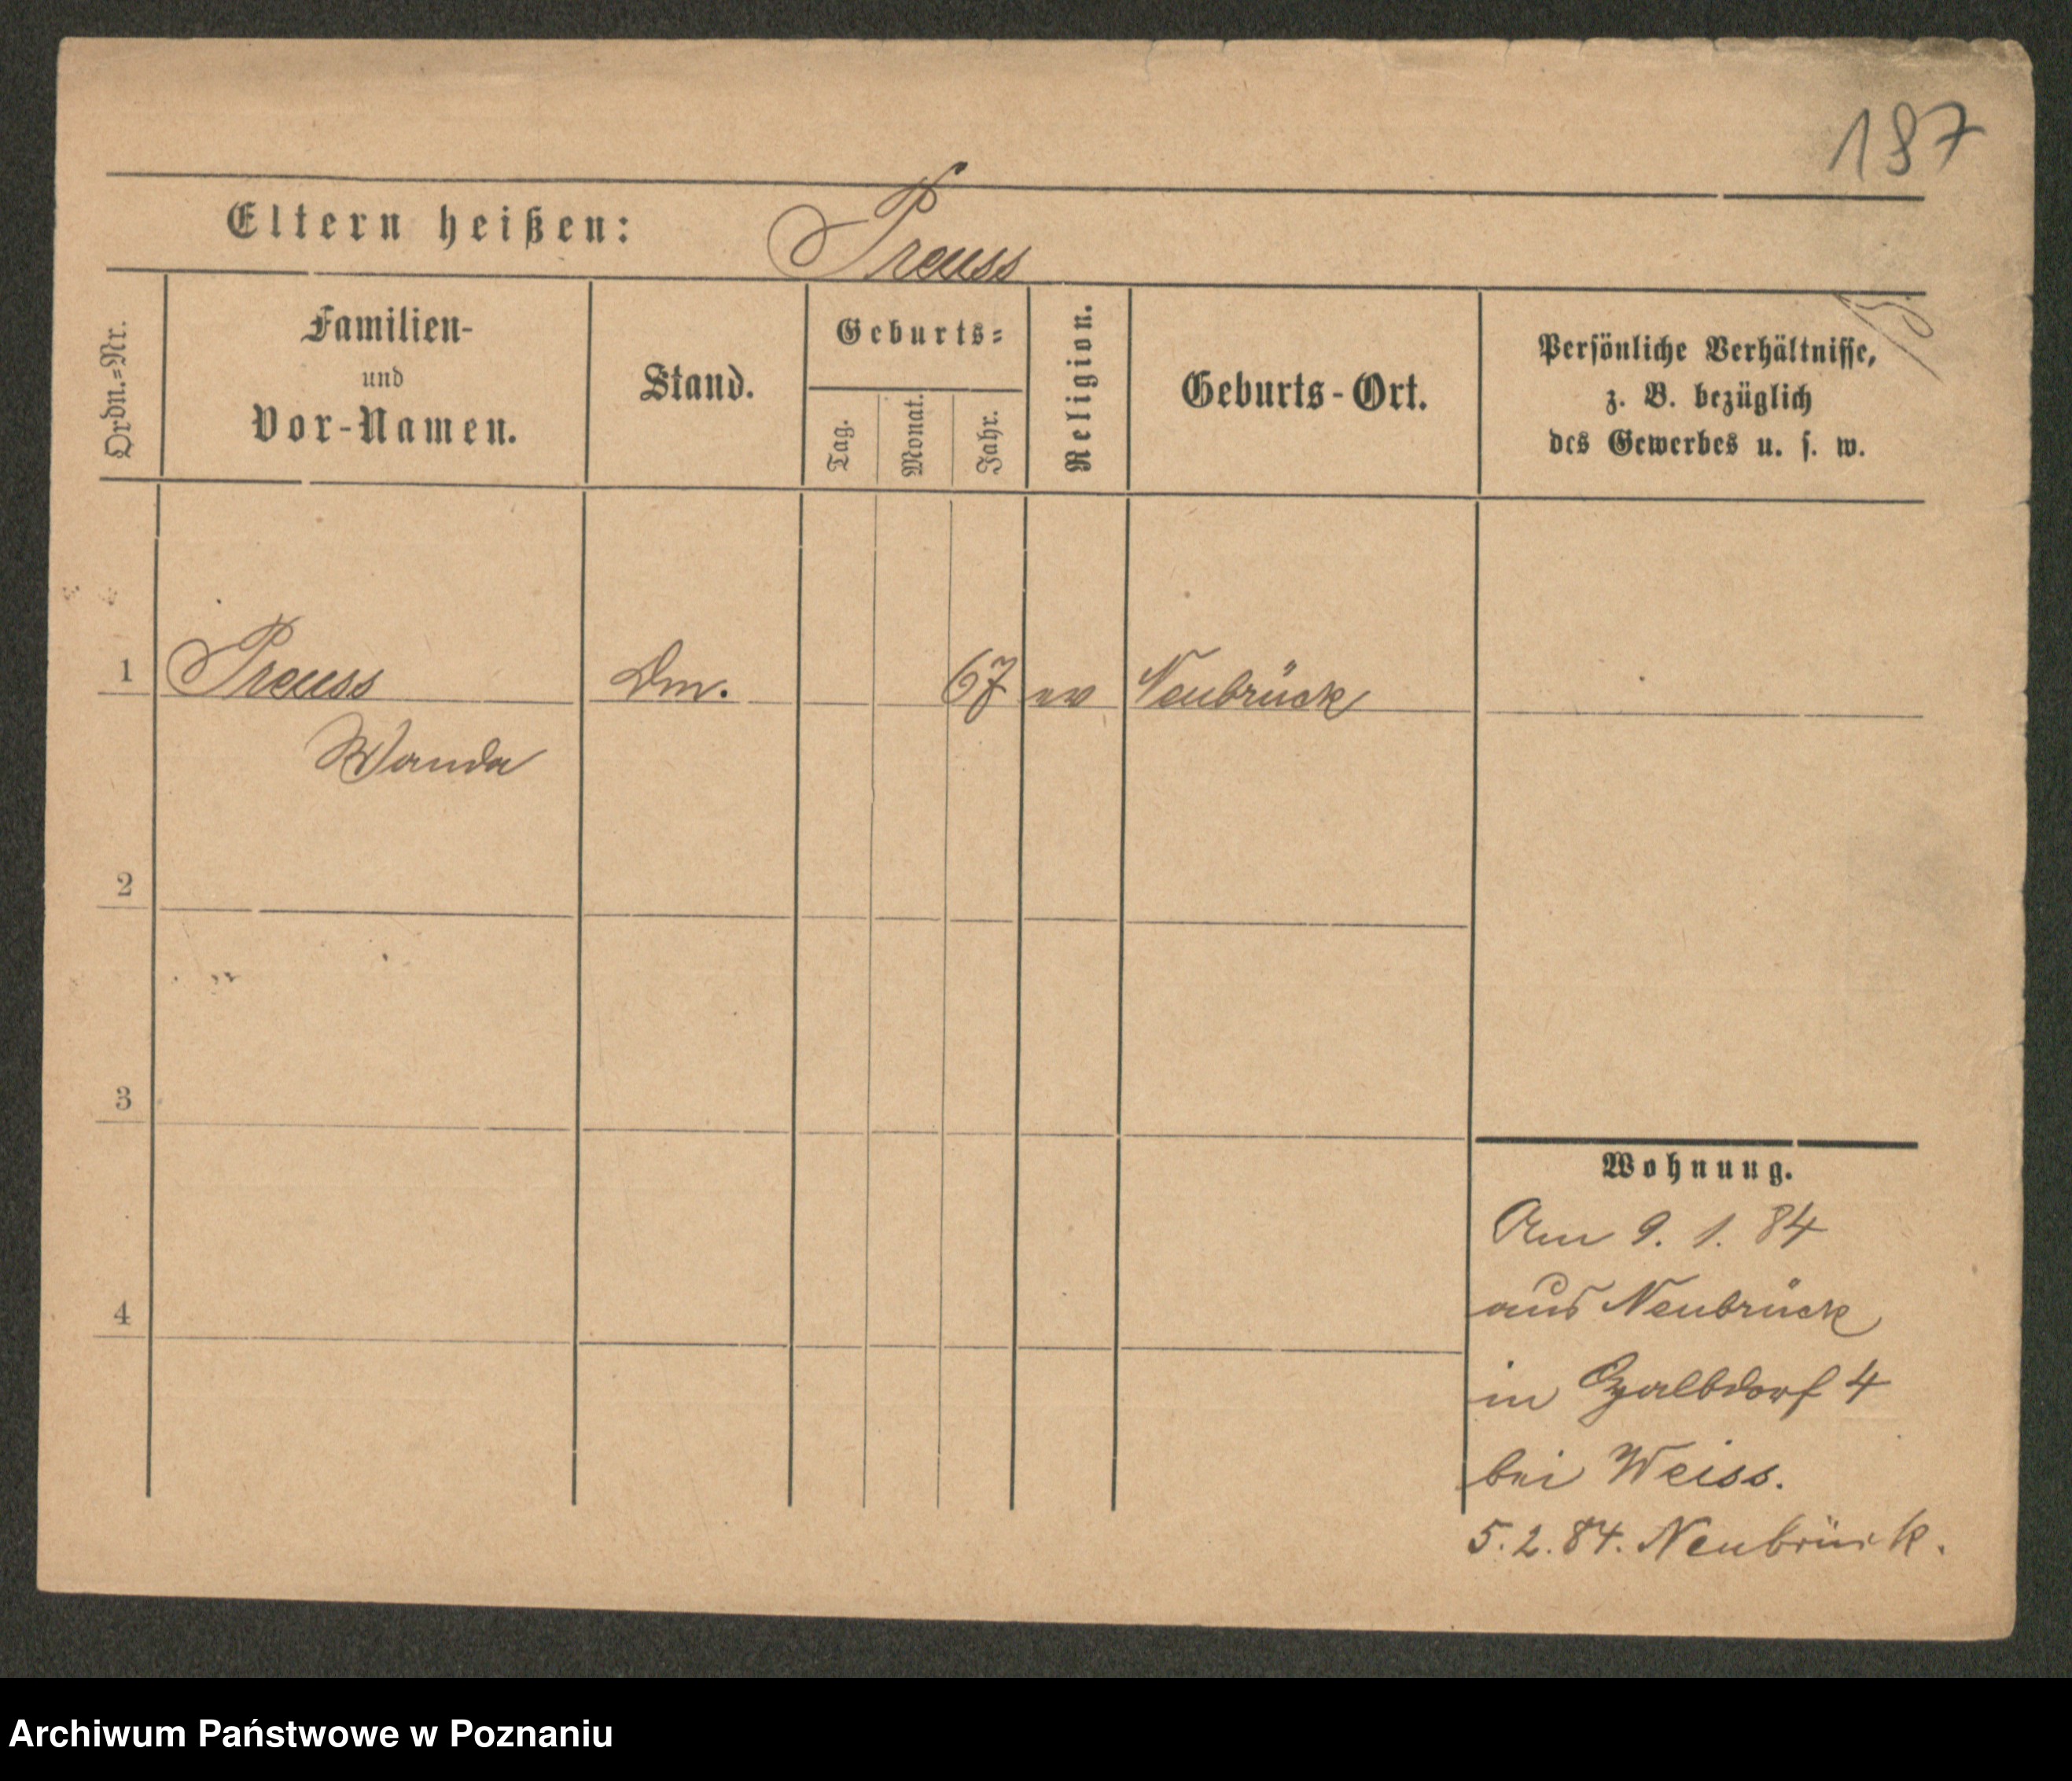 187
Eltern heißen: Preuss
Ordn.=Nr.
Familien-
und
Vor-Namen.
Stand.
Geburts=
Tag.
Monat.
Jahr.
Religion.
Geburts-Ort.
Persönliche Verhältnisse,
z. B. bezüglich
des Gewerbes u. s. w.
1 Preuss Dm. 67 ev Neubrück
Wanda
2
3
4
Wohnung.
Am 9. 1. 84
aus Neubrück
in 4
bei Weiss.
5.2.84. Neubrück.
Archiwum Państwowe w Poznaniu